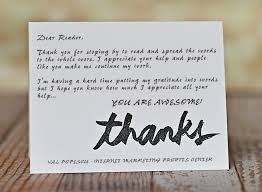 Dear Reader,
Thank you for stoping by to read and spread the words
to the whole world. I appreciate your help and people
like you make me continue my work.
I'm having a hard time putting my gratitude into words
but I hope you know how much I appreciate all your
help...
YOU ARE AWESOME!
thanks
VAL POPESCU - INTERNET MARKETING PROFITS CENTER